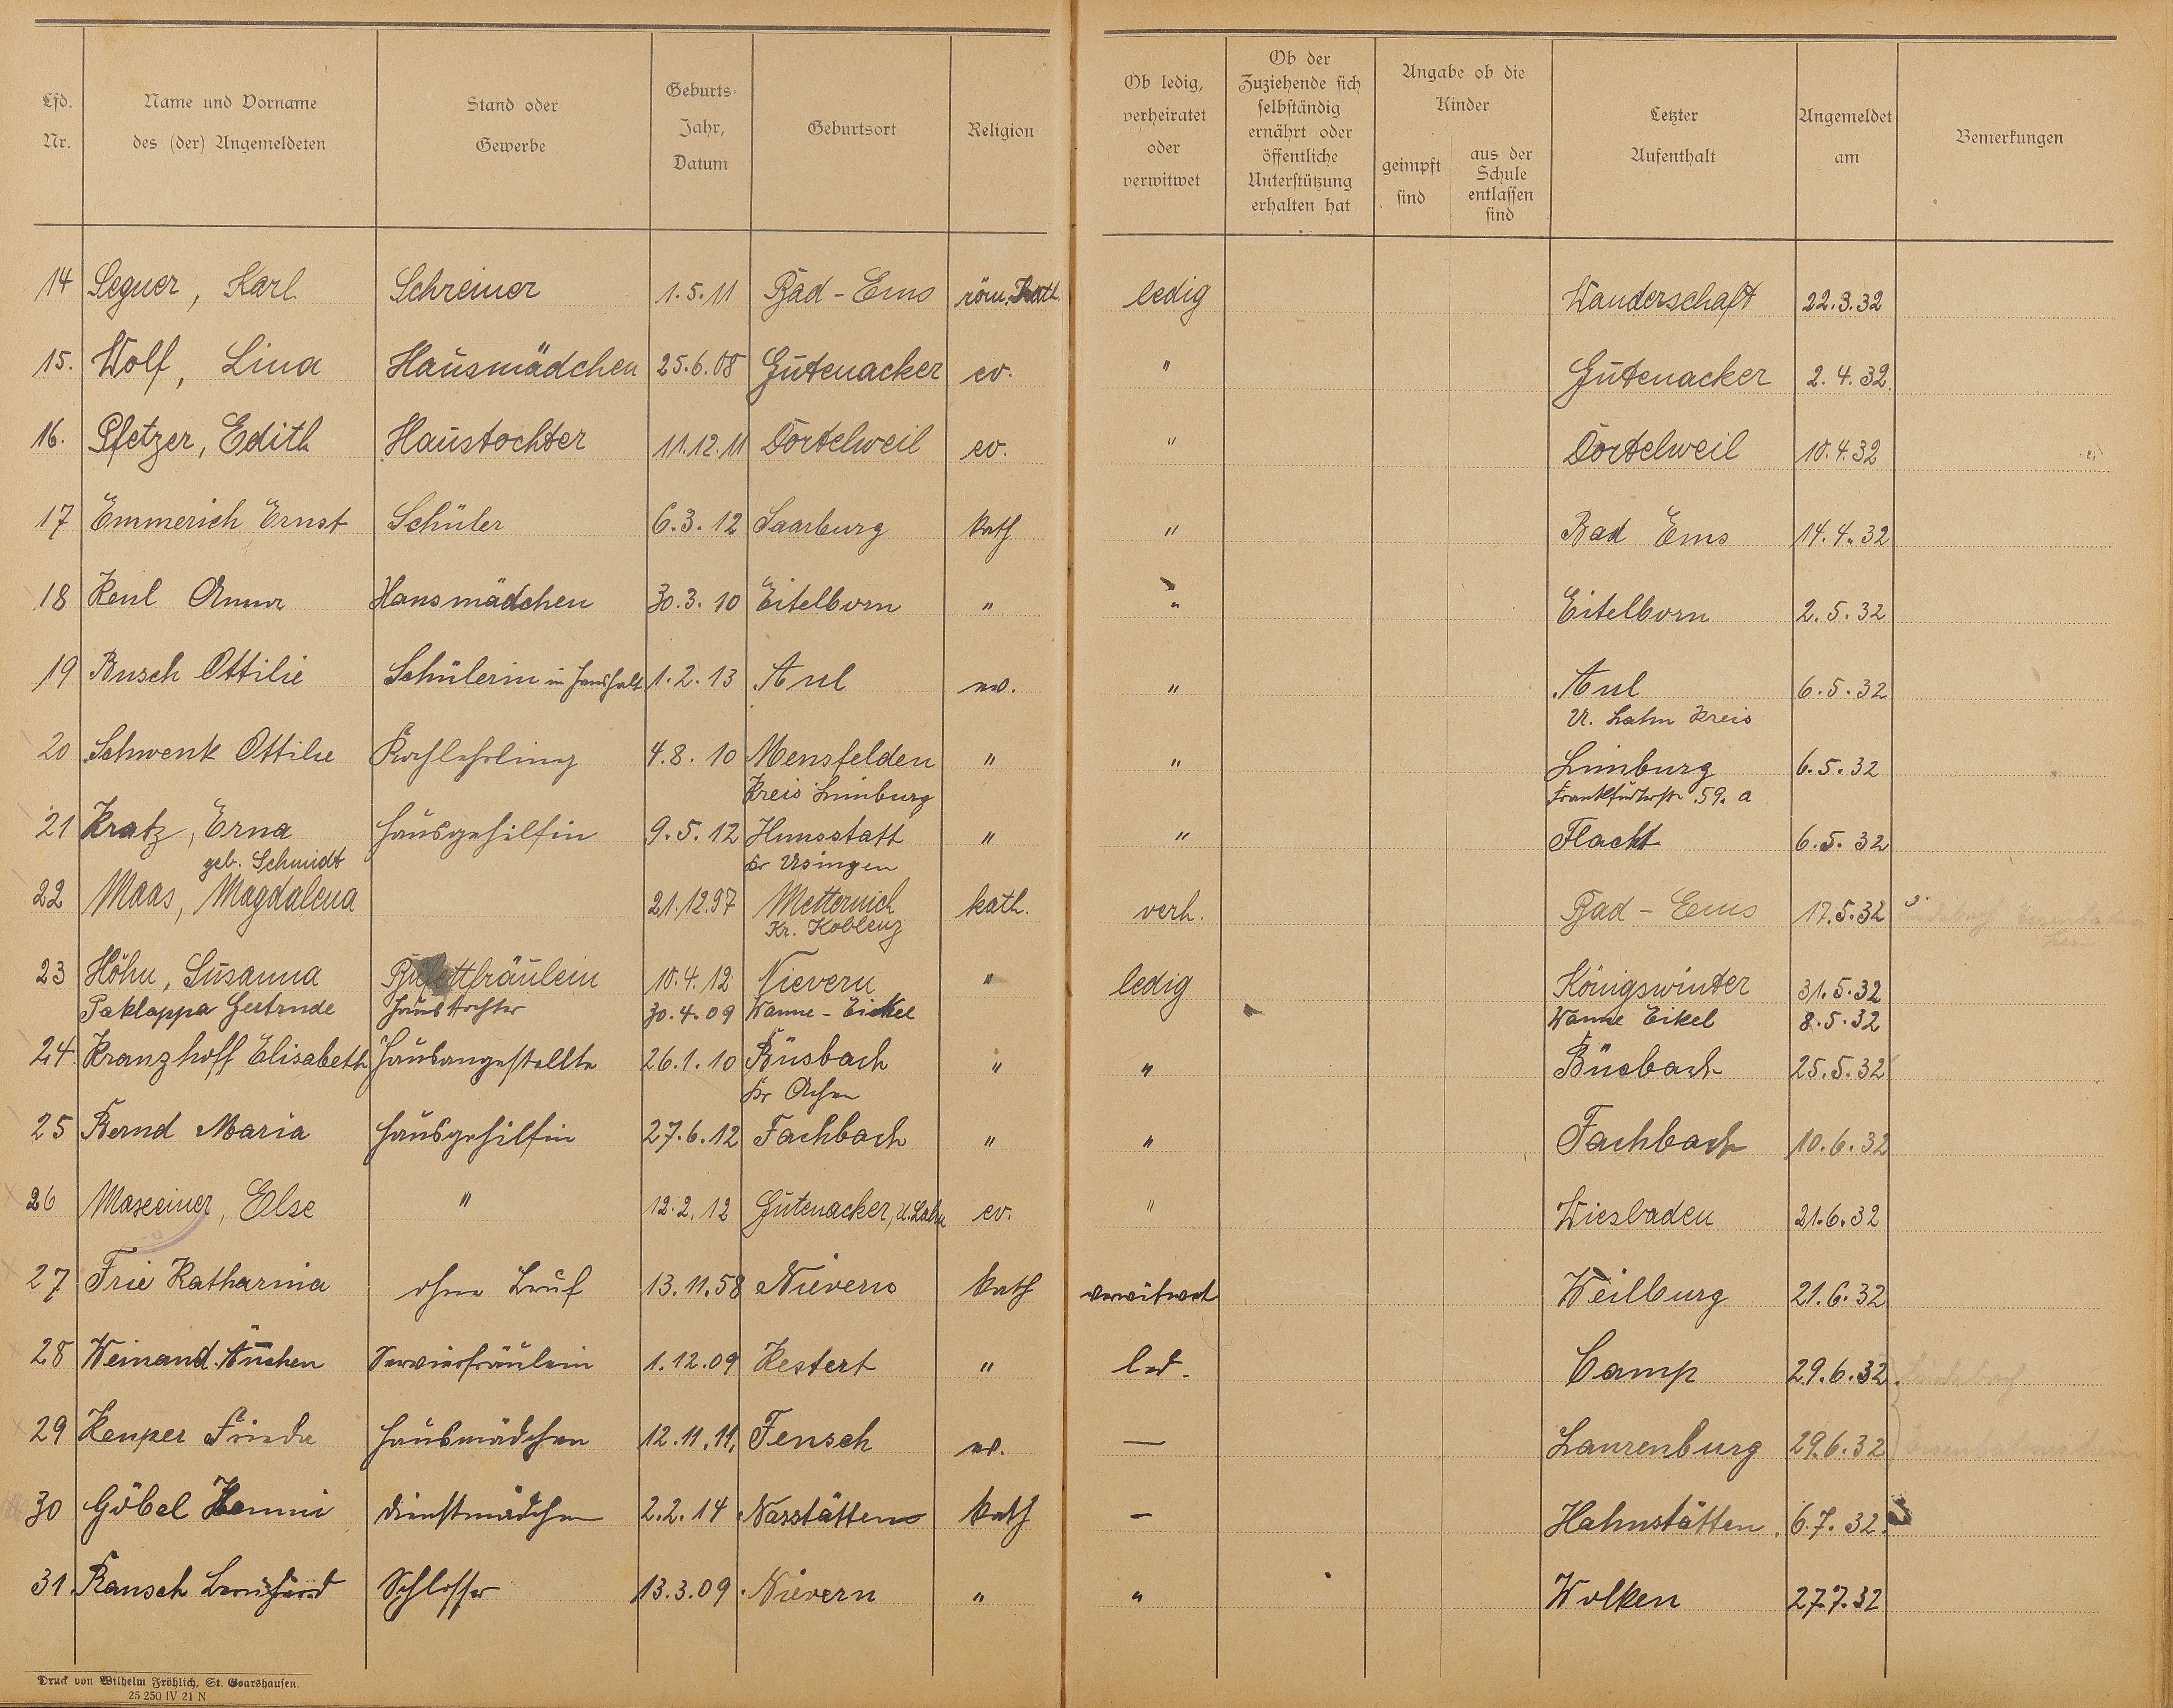 Lfd. Nr.
Name und Vorname des (der) Angemeldeten
Stand oder Gewerbe
Geburts- Jahr, Datum
Geburtsort
Religion
Ob ledig, verheiratet oder verwitwet
Ob der Zuziehende sich selbständig ernährt oder öffentliche Unterstützung erhalten hat
Angabe ob die Kinder
geimpft sind
aus der Schule entlassen sind
Letzter Aufenthalt
Angemeldet am
Bemerkungen
14 Segner, Karl Schreiner 1.5.11 Bad-Ems röm. Kath. ledig Wanderschaft 22.3.32
15. Wolf, Lina Hausmädchen 25.6.08 Gutenacker ev. " Gutenacker 2.4.32.
16. Pfetzer, Edith Haustochter 11.12.11 Dortelweil ev. " Dortelweil 10.4.32
17 Emmerich Ernst Schüler 6.3.12 Saarburg kath " Bad Ems 14.4.32
18 Keul Anna Hausmädchen 30.3.10 Eitelborn " " Eitelborn 2.5.32
19 Busch Ottilie Schülerin in Haushalt 1.2.13 Aul ev. " Aul 6.5.32
U. Lahn Kreis
20 Schwenk Ottilie Kochlehrling 4.8.10 Mensfelden " " Limburg 6.5.32
Kreis Limburg Frankfurterstr. 59. a
21 Kratz, Erna Hausgehilfin 9.5.12 Hunsstatt " " Flacht 6.5.32
geb. Schmidt Kr Usingen
22 Maas, Magdalena 21.12.97 Metternich kath. verh. Bad-Ems 17.5.32
Kr. Koblenz
23 Höhn, Susanna Büfettfräulein 10.4.12 Nievern " ledig Königswinter 31.5.32
Paklappa Gertrude Haustochter 30.4.09 Wanne-Eickel Wanne Eikel 8.5.32
24. Kranzhoff Elisabeth Hausangestellte 26.1.10 Büsbach " " Büsbach 25.5.32
Kr Achen
25 Bernd Maria Hausgehilfin 27.6.12 Fachbach " " Fachbach 10.6.32
26 Maxeiner, Else " 12.2.12 Gutenacker, U. Lahn ev. " Wiesbaden 21.6.32
27 Frie Katharina ohne Beruf 13.11.58 Nievern kath verwitwet Weilburg 21.6.32
28 Weinand Ännchen Servierfräulein 1.12.09 Kestert " led. Camp 29.6.32.
29 Kemper Frieda Hausmädchen 12.11.11. Fensch ev. — Laurenburg 29.6.32
30 Göbel Henni Dienstmädchen 2.2.14 Nasstätten kath — Hahnstätten. 6.7.32.
31. Rausch Bernhard Schlosser 13.3.09. Nievern " " Wolken 27.7.32
Druck von Wilhelm Fröhlich, St. Goarshausen.
25 250 IV 21 N